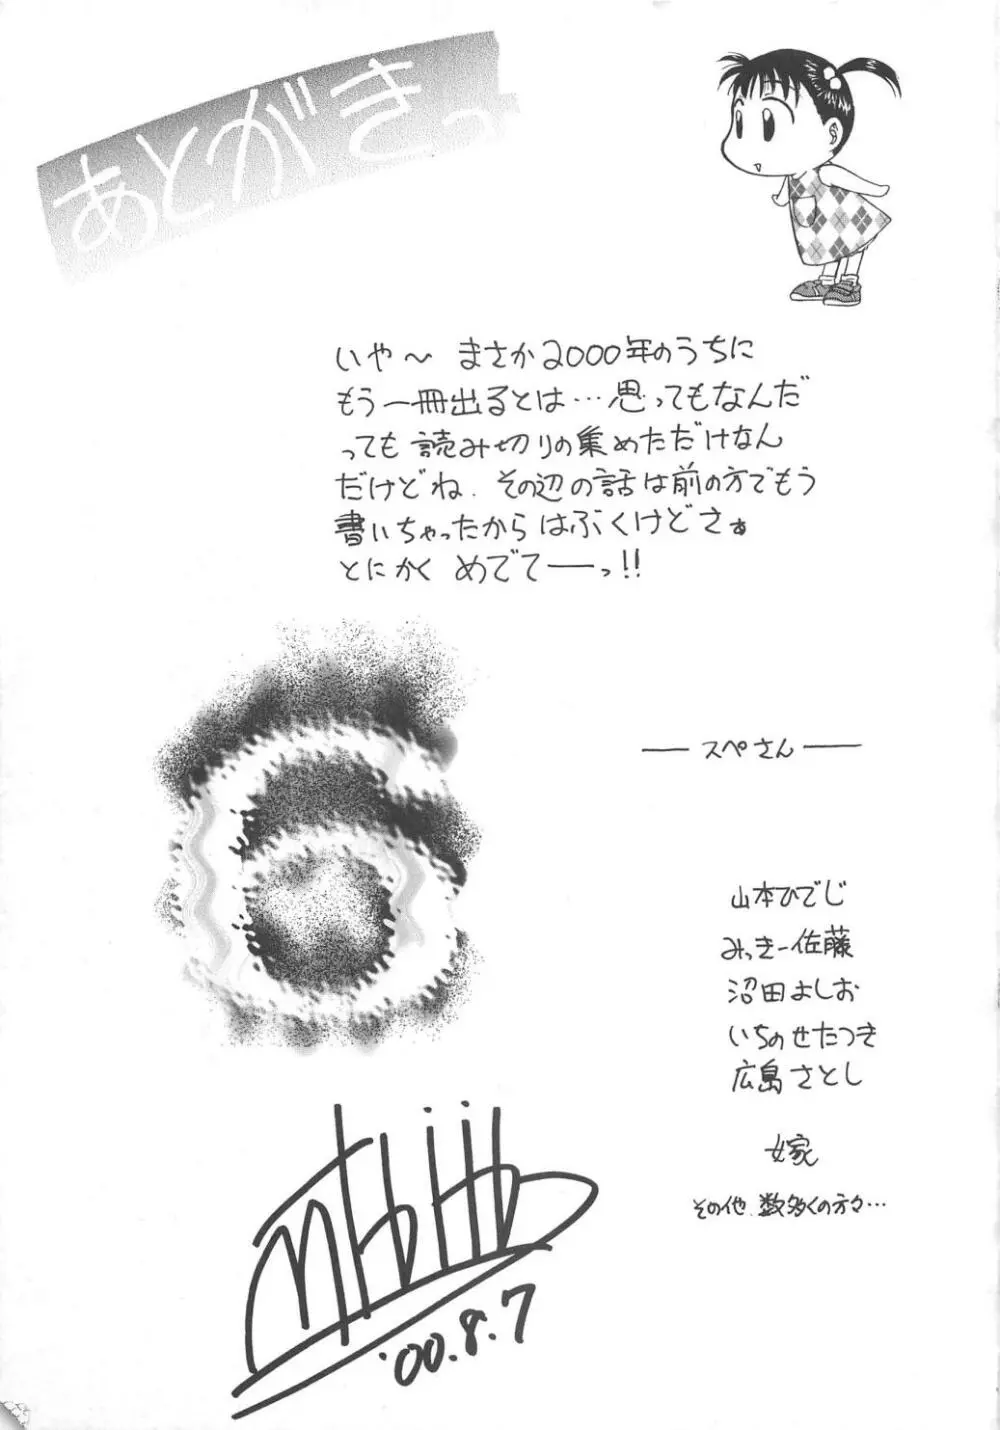 あとがきっ
いや〜 まさか2000年のうちに
もう一冊出るとは…思ってもなんだ
っても 読み切りの集めただけなん
だけどね. その辺の話は前の方でもう
書いちゃったから はぶくけどさぁ
とにかく めでてーっ!!
── スペさん ──
山本ひでじ
みっきー佐藤
沼田よしお
いちのせたつき
広島さとし
嫁
その他 数多くの方々…
'00.8.7